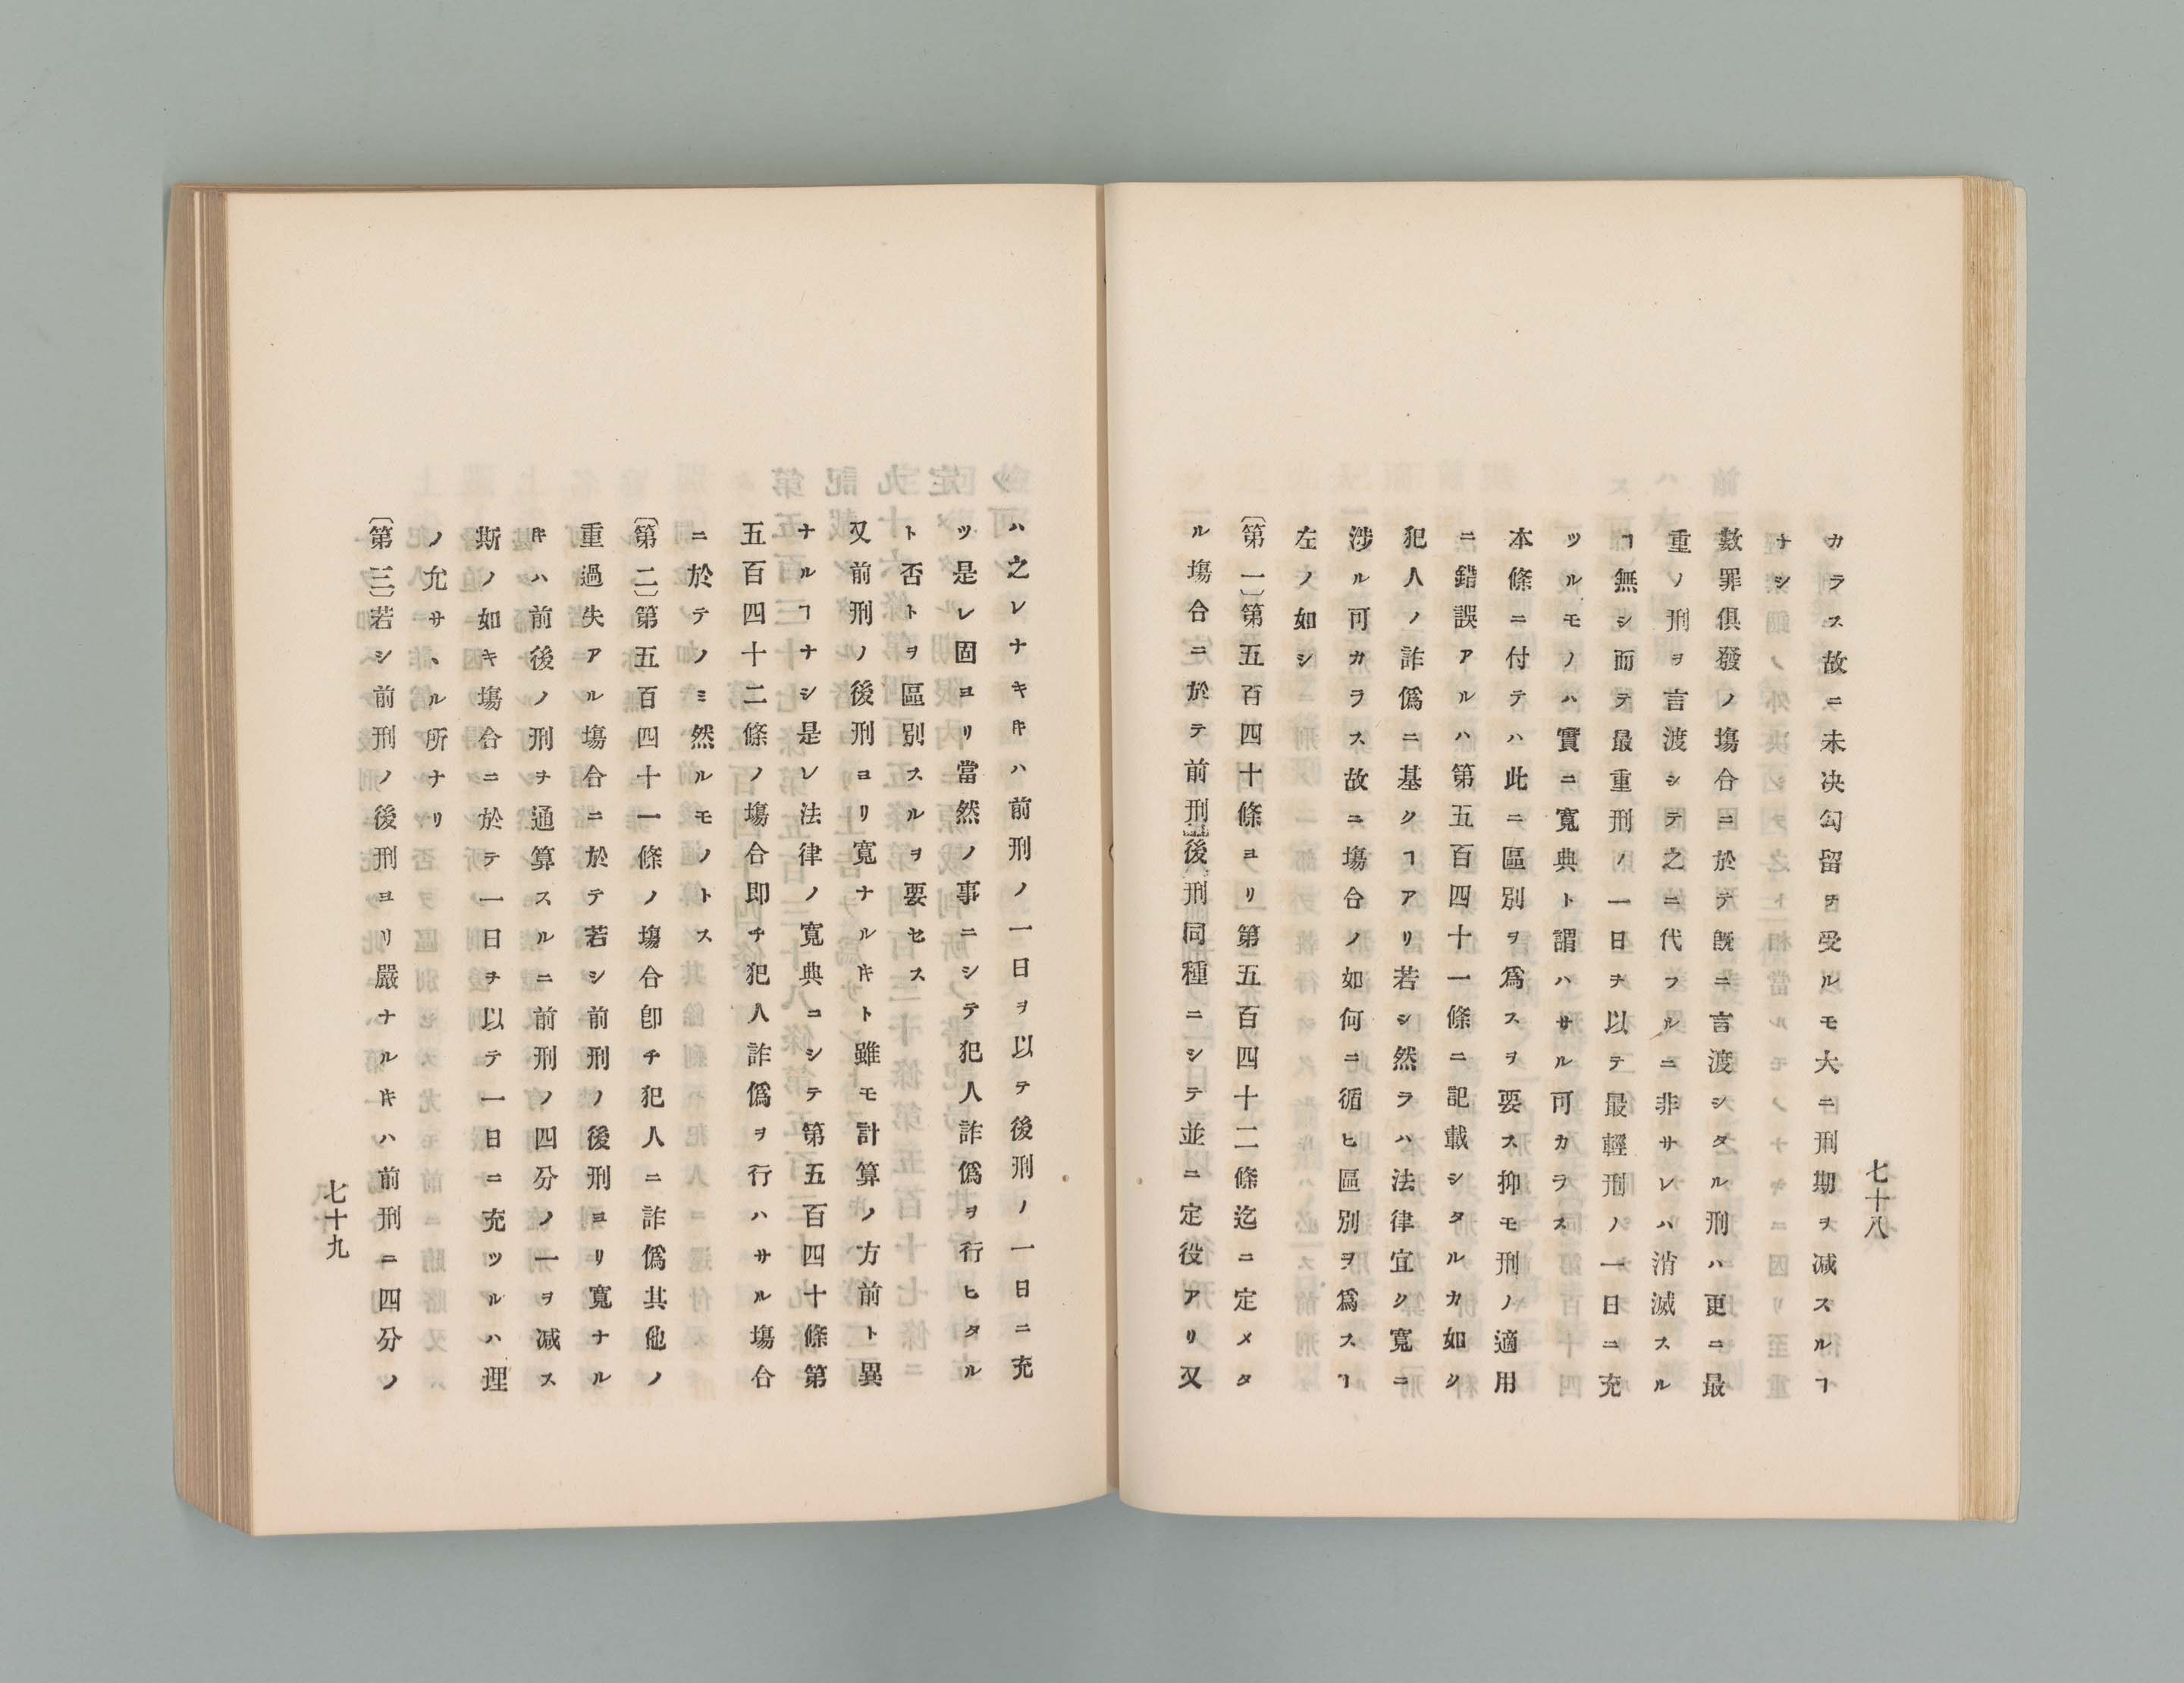 七十八
カラス故ニ未决勾留ヲ受ルモ大ニ刑期ヲ减スルヿ
ナシ
數罪俱發ノ塲合ニ於テ既ニ言渡シタル刑ハ更ニ最
重ノ刑ヲ言渡シテ之ニ代フルニ非サレハ消滅スル
ヿ無シ而テ最重刑ノ一日ヲ以テ最輕刑ノ一日ニ充
ツルモノハ實ニ寛典ト謂ハサル可カラス
本條ニ付テハ此ニ區別ヲ爲スヲ要ス抑モ刑ノ適用
ニ錯誤アルハ第五百四十一條ニ記載シタルカ如ク
犯人ノ詐僞ニ基クヿアリ若シ然ラハ法律宜ク寛ニ
涉ル可カラス故ニ塲合ノ如何ニ循ヒ區別ヲ爲スヿ
左ノ如シ
〔第一〕第五百四十條ヨリ第五百四十二條迄ニ定メタ
ル塲合ニ於テ前刑後刑同種ニシテ並ニ定役アリ又
ハ之レナキキハ前刑ノ一日ヲ以テ後刑ノ一日ニ充
ツ是レ固ヨリ當然ノ事ニシテ犯人詐僞ヲ行ヒタル
ト否トヲ區別スルヲ要セス
又前刑ノ後刑ヨリ寛ナルキト雖モ計算ノ方前ト異
ナルヿナシ是レ法律ノ寛典ニシテ第五百四十條第
五百四十二條ノ塲合即チ犯人詐僞ヲ行ハサル塲合
ニ於テノミ然ルモノトス
〔第二〕第五百四十一條ノ塲合卽チ犯人ニ詐僞其他ノ
重過失アル塲合ニ於テ若シ前刑ノ後刑ヨリ寛ナル
キハ前後ノ刑ヲ通算スルニ前刑ノ四分ノ一ヲ减ス
斯ノ如キ塲合ニ於テ一日ヲ以テ一日ニ充ツルハ理
ノ允サヽル所ナリ
〔第三〕若シ前刑ノ後刑ヨリ嚴ナルキハ前刑ニ四分ノ
七十九